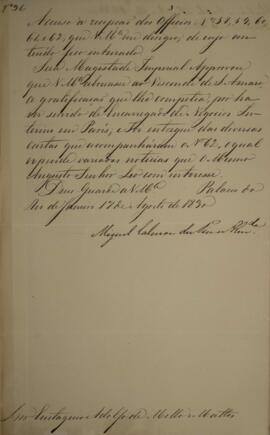 Nº 36
Accuso a recepção dos Officios Nºs 58, 59, 60,
61 e 62, que V. Mce. me dirigio, de cujo con-
teudo fico inteirado.
Sua Magestade Imperial Approvou
que V. Mce. abonasse ao Visconde de S. Amaro
a gratificação que lhe competia, por ha-
ver servido de Encarregado de Negocios In-
terino em Paris, e fez entrega das diversas
cartas que acompanharão o Nº 62, o qual
expende variadas noticias que o Mesmo
Augusto Senhor Leo com interesse.
Deus Guarde a V. Mce. Palacio do
Rio de Janeiro 17 de Agosto de 1830
Miguel Calmon du Pin e Almda.
Snr. Eustaquio Adolfo de Mello e Mattos